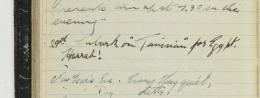 up at 7.30 in the
evening -
29th Embark on "Tunisian" for Egypt.
Hurrah!
New Years Eve. Very quiet.
ditto